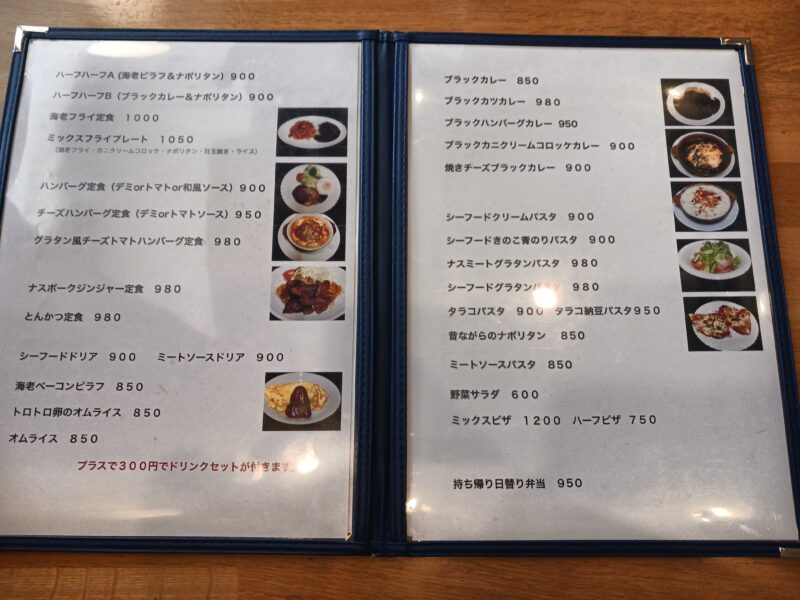 ハーフハーフA (海老ピラフ＆ナポリタン) ９００
ハーフハーフB（ブラックカレー＆ナポリタン）９００
海老フライ定食　１０００
ミックスフライプレート　１０５０
（海老フライ・カニクリームコロッケ・ナポリタン・目玉焼き・ライス）
ハンバーグ定食（デミorトマトor和風ソース）９００
チーズハンバーグ定食（デミorトマトソース）９５０
グラタン風チーズトマトハンバーグ定食　９８０
ナスポークジンジャー定食　９８０
とんかつ定食　９８０
シーフードドリア　９００　　ミートソースドリア　９００
海老ベーコンピラフ　８５０
トロトロ卵のオムライス　８５０
オムライス　８５０
プラスで３００円でドリンクセットが付きます。
ブラックカレー　８５０
ブラックカツカレー　９８０
ブラックハンバーグカレー　950
ブラックカニクリームコロッケカレー　９００
焼きチーズブラックカレー　９００
シーフードクリームパスタ　９００
シーフードきのこ青のりパスタ　９００
ナスミートグラタンパスタ　９８０
シーフードグラタンパスタ　９８０
タラコパスタ　９００　タラコ納豆パスタ９５０
昔ながらのナポリタン　８５０
ミートソースパスタ　８５０
野菜サラダ　６００
ミックスピザ　１２００　ハーフピザ　７５０
持ち帰り日替り弁当　９５０